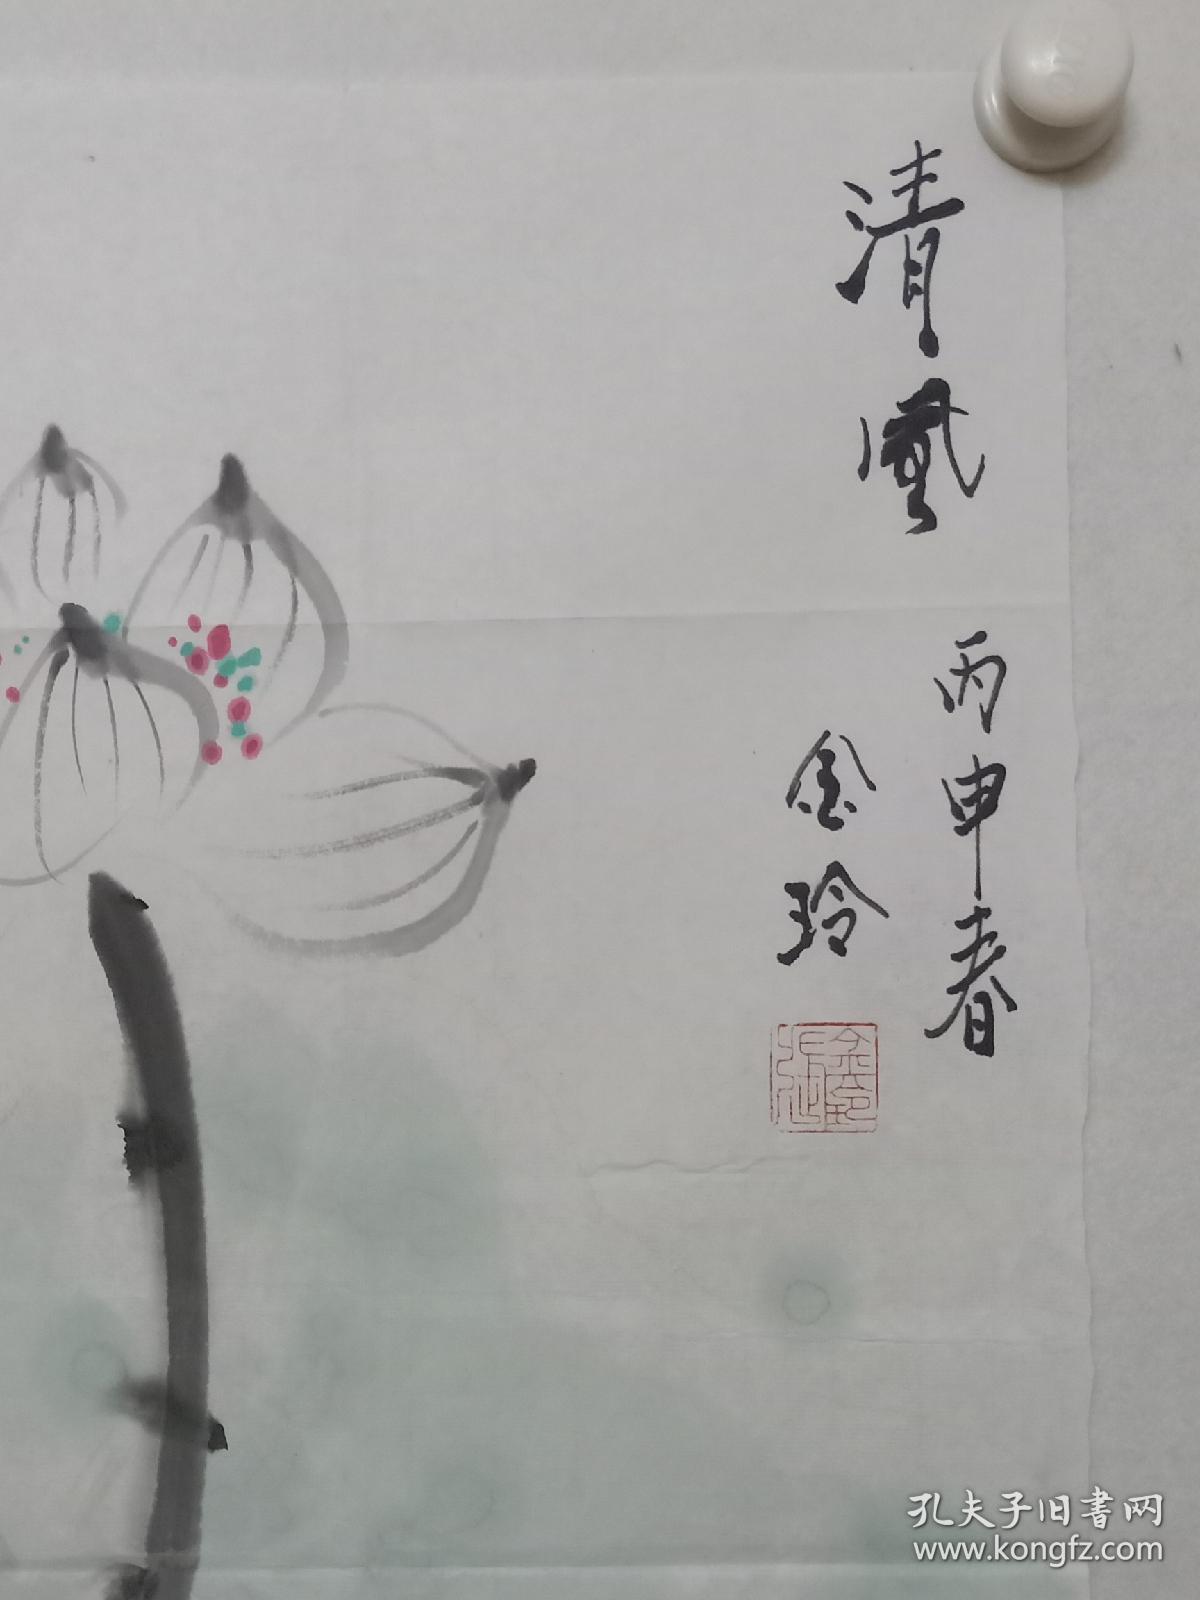 清风
丙申春
金玲
孔夫子旧書网
www.kongfz.com